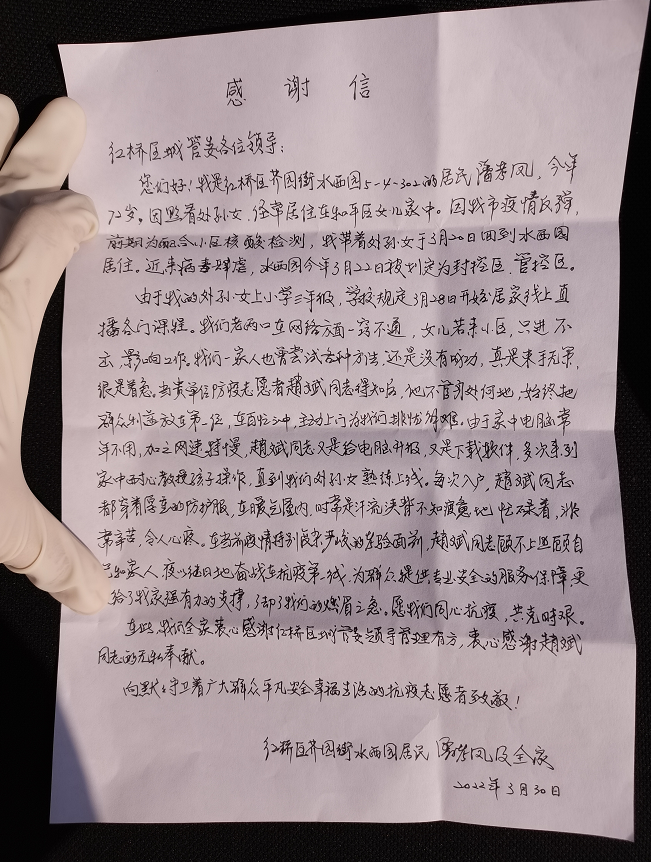 感谢信
红桥区城管委各位领导：
您们好！我是红桥区芥园街水西园5-4-302的居民潘孝凤，今年
72岁。因照看外孙女，经常居住在和平区女儿家中。因我市疫情反弹，
前期为配合小区核酸检测，我带着外孙女于3月20日回到水西园
居住。近来病毒肆虐，水西园今年3月22日被划定为封控区、管控区。
由于我的外孙女上小学三年级，学校规定3月28日开始居家线上直
播各门课程。我们老两口在网络方面一窍不通，女儿若来小区，只进不
出，影响工作。我们一家人也曾尝试各种方法，还是没有成功，真是束手无策，
很是着急。当贵单位防疫志愿者赵斌同志得知后，他不管身处何地，始终把
群众利益放在第一位，在百忙之中，主动上门为我们排忧解难。由于家中电脑常
年不用，加之网速特慢，赵斌同志又是给电脑升级，又是下载软件，多次来到
家中耐心教授孩子操作，直到我们外孙女熟练上线。每次入户，赵斌同志
都穿着厚重的防护服，在暖气屋内，时常是汗流浃背不知疲惫地忙碌着，非
常辛苦，令人心疼。在当前疫情特别复杂严峻的考验面前，赵斌同志顾不上照顾自
己和家人，夜以继日地奋战在抗疫第一线，为群众提供专业安全的服务保障，更
给了我家强有力的支撑，了却了我们的燃眉之急。愿我们同心抗疫，共克时艰。
在此，我们全家衷心感谢红桥区城管委领导管理有方，衷心感谢赵斌
同志的无私奉献。
向默默守卫着广大群众平凡安全幸福生活的抗疫志愿者致敬！
红桥区芥园街水西园居民 潘孝凤及全家
2022年3月30日